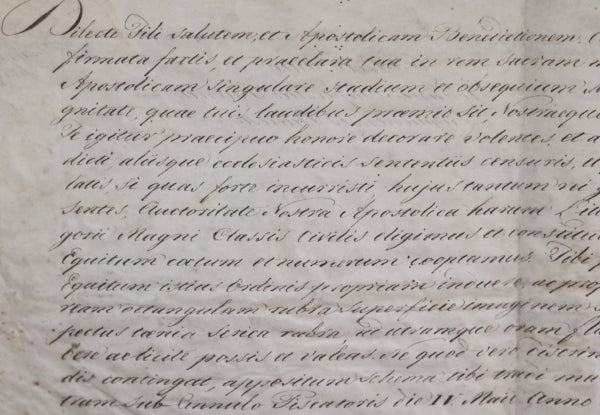 Dilecte Fili salutem, et Apostolicam Benedictionem.
firmata factis, et praeclara tua in rem sacram
Apostolicam singulare studium et obsequium
gnitate, quae tuis laudibus praemio sit, Nostraeque
Te igitur praecipuo honore decorare volentes, et a
dicti aliisque ecclesiasticis sententiis censuris, et
latis, si quas forte incurristi hujus tantum
sentes, Auctoritate Nostra Apostolica harum
gorii Magni Classis Civilis eligimus et constitui
Equitum coetum et numerum cooptamus. Tibi
Equitum istius Ordinis propriam induere, ac prop
ream octangulam rubra superficie imaginem
pectus taenia serica rubra ad utramque oram fl
cere ac licite possis et valeas. Ne quod vero discrim
dis contingat, appositum schema tibi tradi
trum sub Annulo Piscatoris die IV Maii Anno